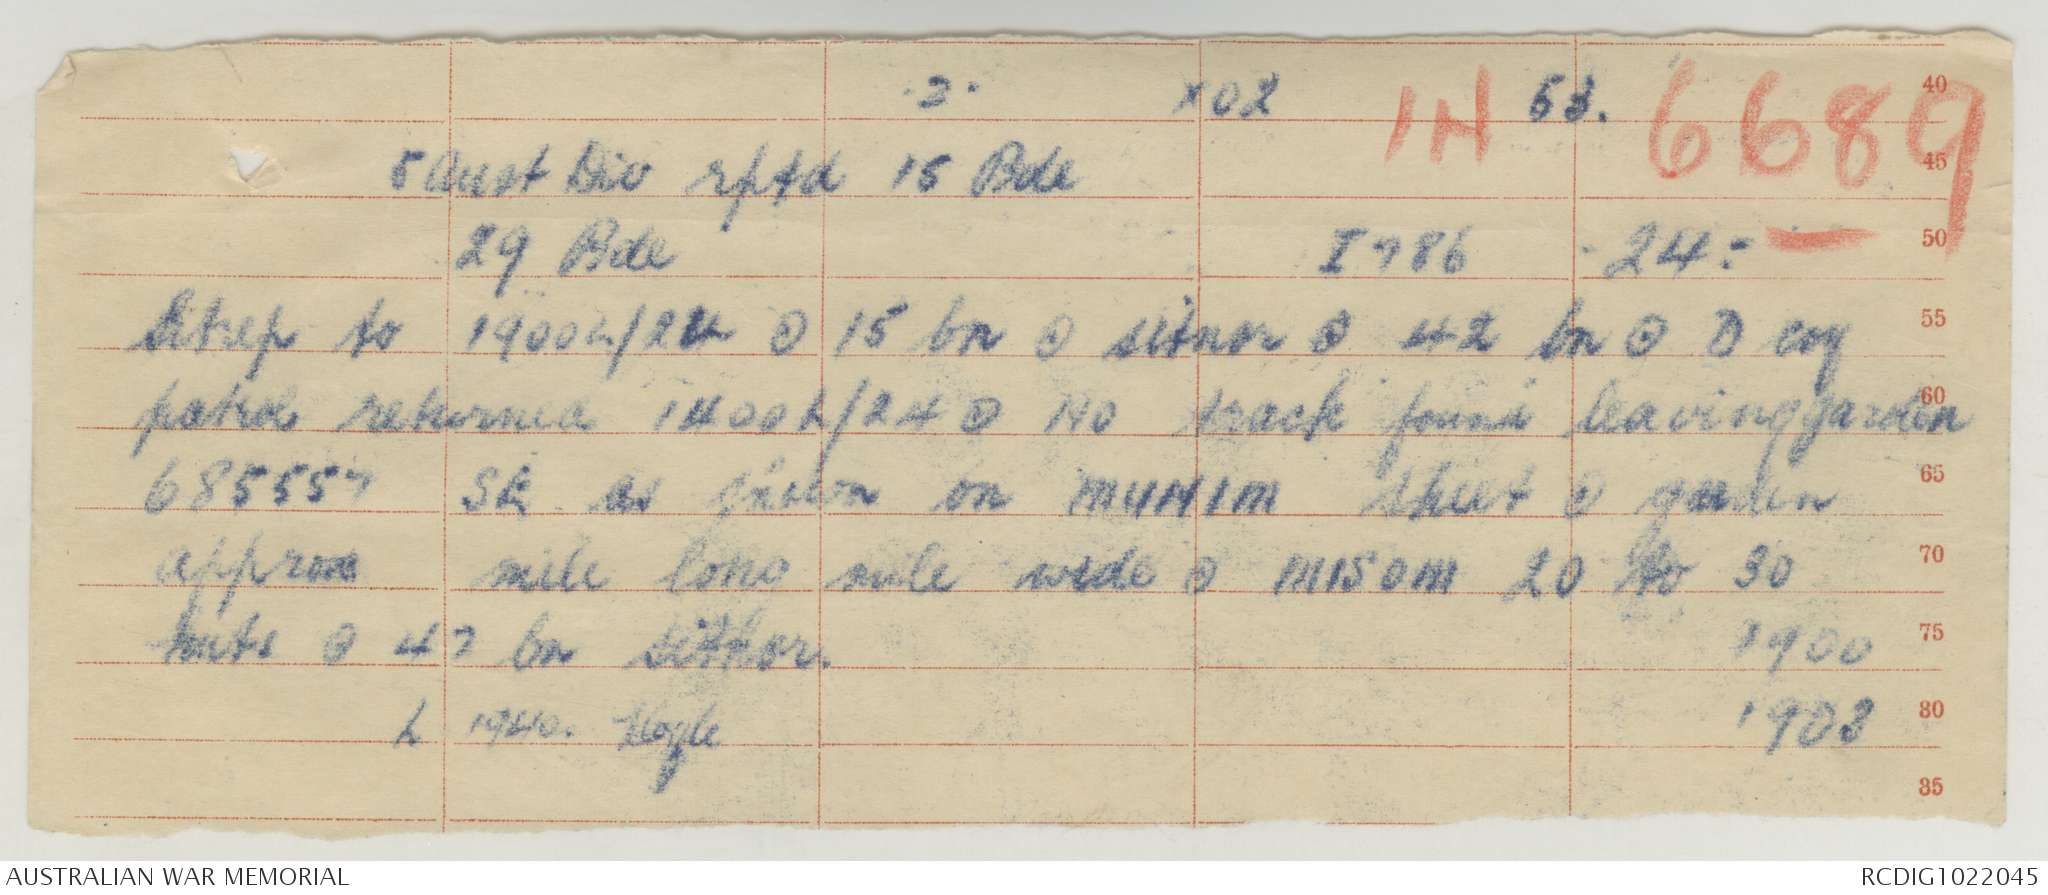 .2. X02 IN 53. 6689 40
5 Aust Div rptd 15 Bde 45
29 Bde I 786 24. 50
Sitrep to 1900L/24 @ 15 bn @ sitnor @ 42 bn @ D coy 55
patrol returned 1400L/24 @ NO track found leaving garden 60
685557 SE as shewn on MUNIM sheet @ garden 65
approx mile long mile wide @ MISOM 20 to 30 70
huts @ 47 bn sitnor. 1900 75
L 1940. 1903 80
85
AUSTRALIAN WAR MEMORIAL RCDIG1022045